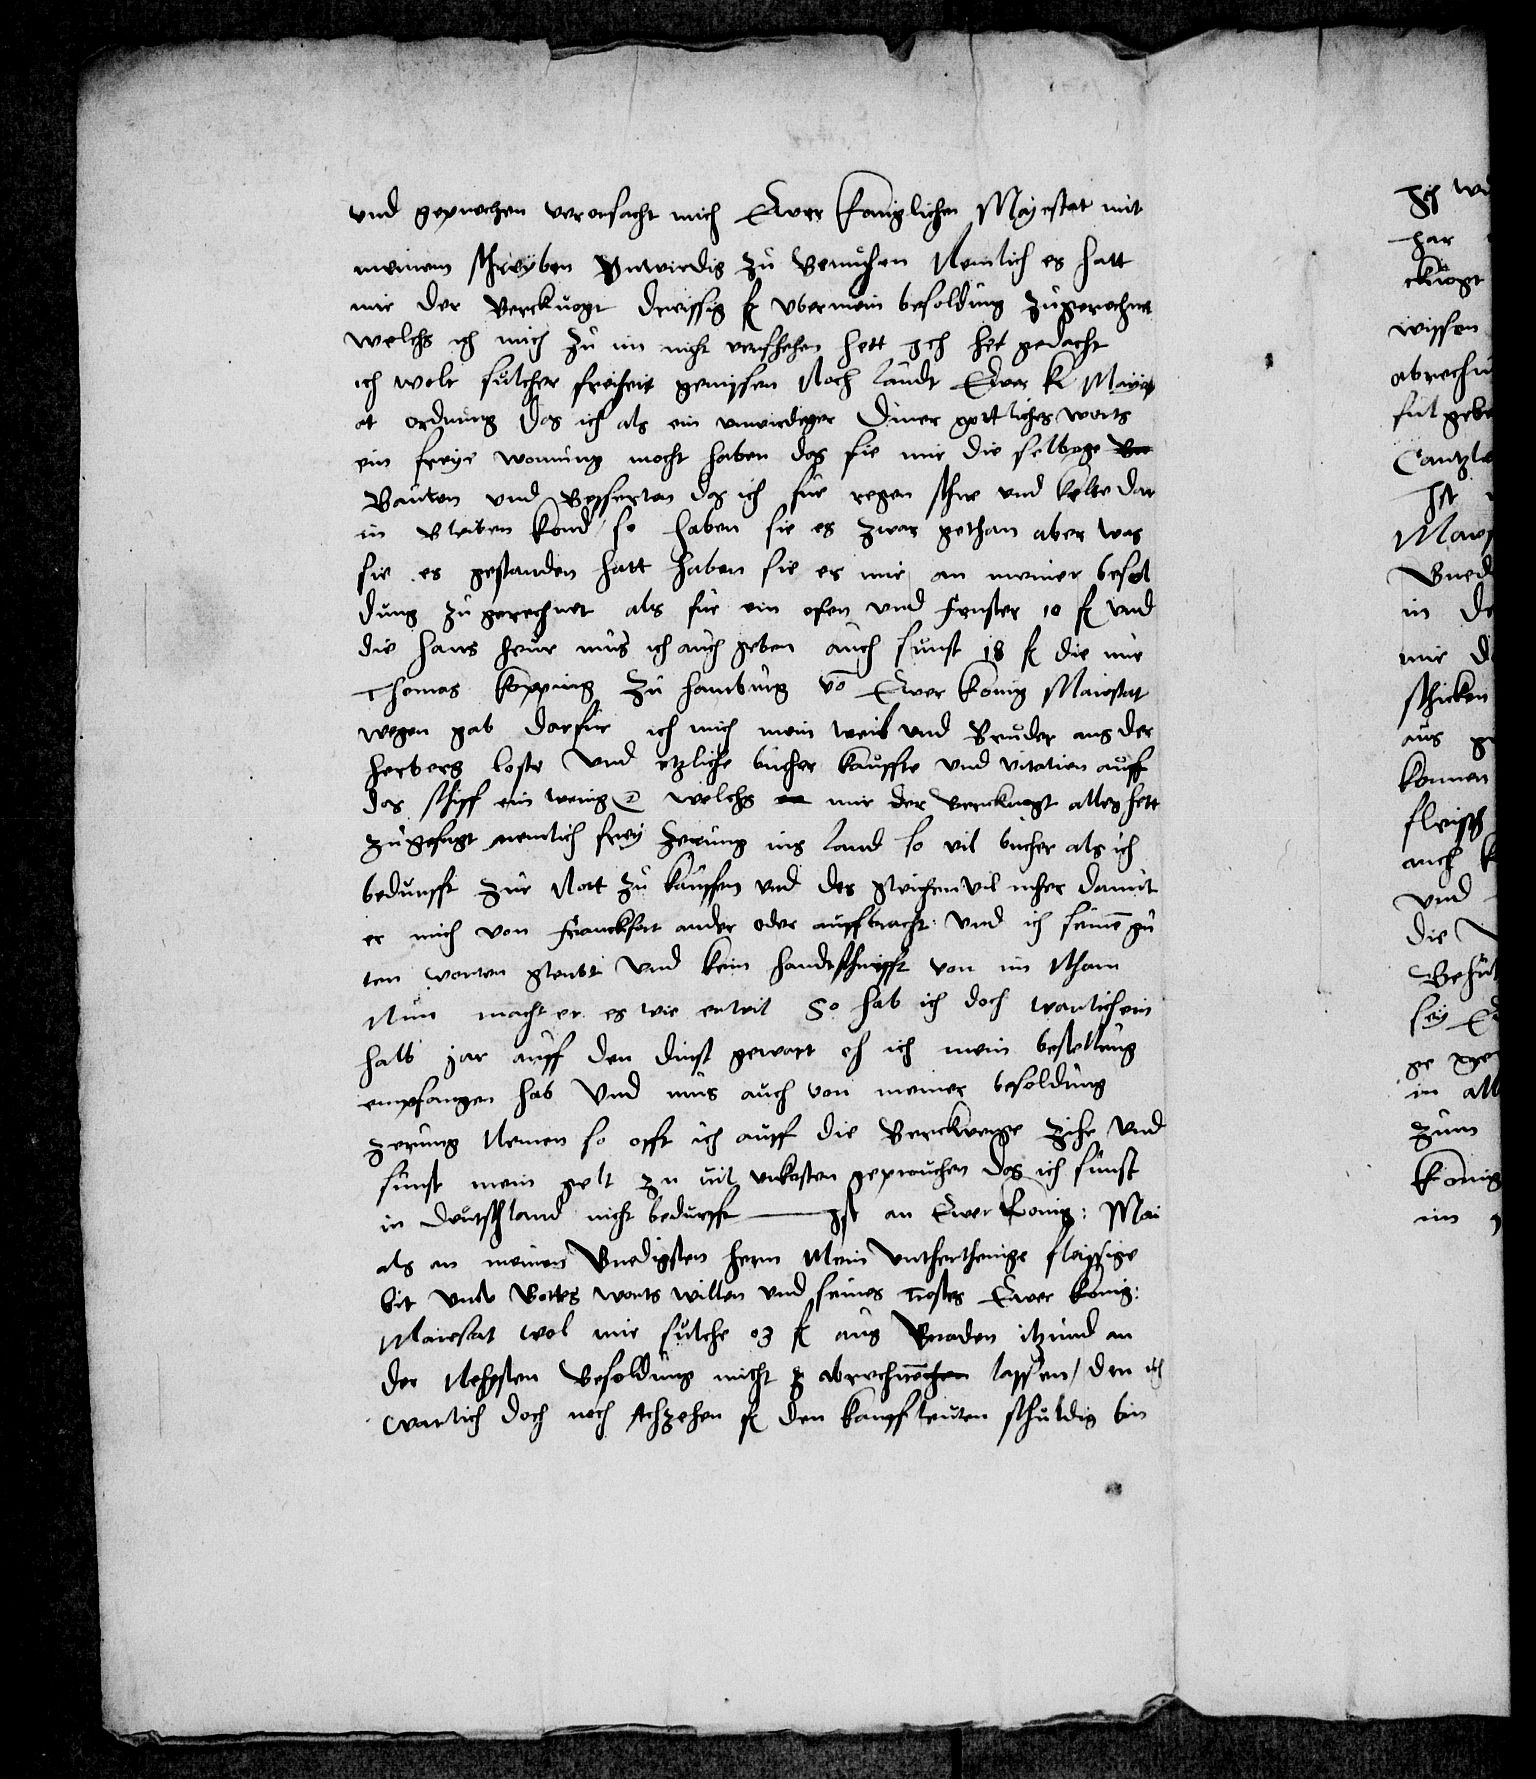 vnd geprechen verorsacht mich Ewer Koniglichen Mayestat mit
meinem schreyben vnwirdig zu bemuhen Nemlich es hatt
mir der Berckuogt dreissig fl vber mein besoldung zugerechnet
welchs ich mich zu im nicht versehen hett Ich het gedacht
ich wolt sulcher freiheit genissen Noch laudt Ewer K Mayest
at ordnung das ich als ein vnwirdiger diner gottliches worts
ein freye wonung mocht haben das sie mir die selbege
Bauten vnd Besserten das ich für regen schne vnd kelte dar
in Bleiben kond so haben sie es zwar gethan aber was
sie es gestanden hatt haben sie es mir an meiner besol
dung zu gerechnet als für ein ofen vnd fenster 10 fl vnd
die haus heur mus ich auch geben auch sunst 18 fl die mir
Thomas Kopping zu hamburg vō Ewer Konig Maiestat
wegen gab darfür ich mich mein weib vnd Bruder aus der
herberg loste Vnd etzliche bücher kauffte vnd vitalien auff
das schiff ein wenig welchs mir der Berckuogt alles hett
zugesagt nemlich frey zerung ins land so vil bücher als ich
bedurfft zur Nott zu kauffen vnd des gleichen vil meher damit
er mich von Franckfort an der oder auffbracht: vnd ich seinē gu
ten worten gleubt Vnd kein handtschrifft von im Nham
Nun macht er es wie er wil So hab ich doch warlich ein
halb jar auff den dinst gewart eh ich mein bestellung
empfangen hab Vnd mus auch von meiner besoldung
zerung Nemen so offt ich auff die Berckwerge zihe Vnd
sunst mein gelt zu vil vnkosten geprauchen das ich sunst
in deutschland nicht bedurfft Ist an Ewer Konig: Mai
als an meinen Gnedigsten hern Mein Vnthertenige fleissige
bit Vmb Gottes worts willen vnd seines Ewer Konig:
Maiestat wol mir sulche 03 fl aus Genaden itzund an
der Nehesten Besoldung nicht lassen / den ich
warlich doch noch Achzehen fl den kauffleuten schuldig bin
Ich
har
ckuogt
wissen
abrechn
ful gebe
Cantzle
Ist
Maies
Gned
in de
mir d
schicken
aus
konnen
fleisch
auch
vnd
die
Behut
sey
in all
zum
Konig
im